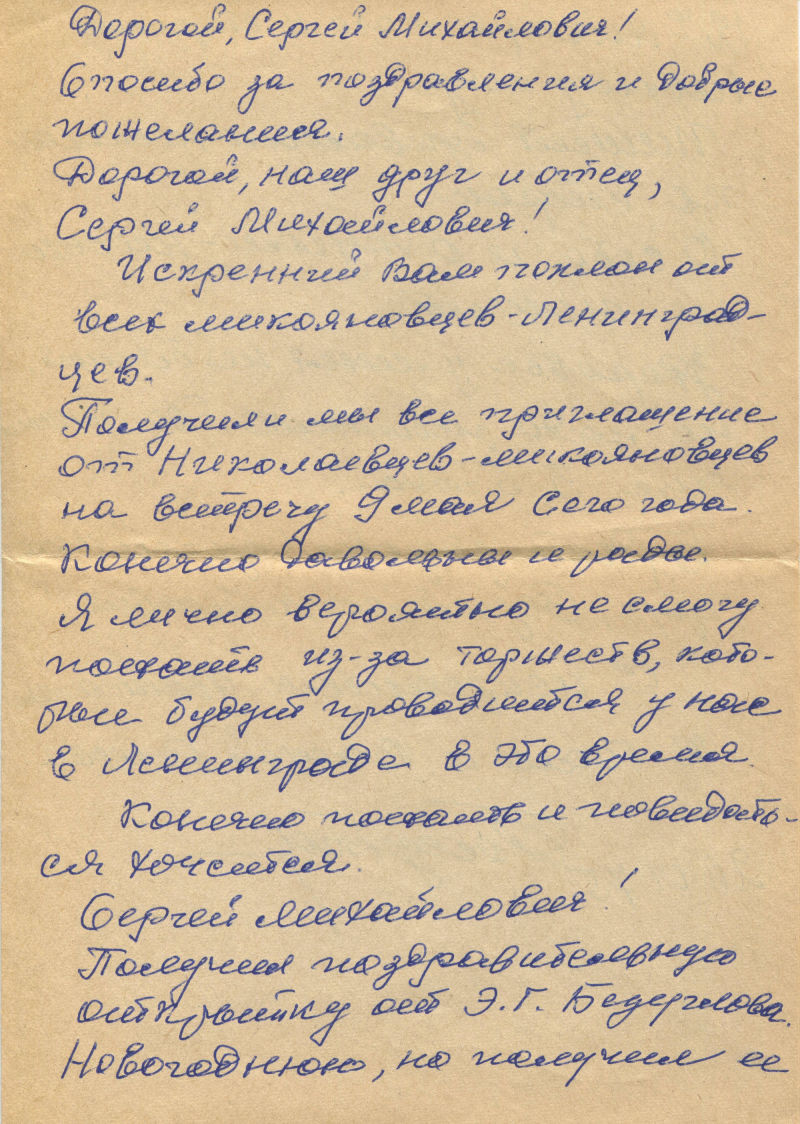 Дорогой, Сергей Михайлович!
Спасибо за поздравления и добрые
пожелания.
Дорогой, наш друг и отец,
Сергей Михайлович!
Искренний Вам поклон от
всех микояновцев-Ленинград-
цев.
Получили мы все приглашение
от Николаевцев-микояновцев
на встречу 9 мая сего года.
Конечно довольны и рады.
Я лично вероятно не смогу
поехать из-за торжеств, кото-
рые будут проводится у нас
в Ленинграде в это время.
Конечно поехать и повидать-
ся хочется.
Сергей Михайлович!
Получил поздравительную
открытку от Э.Г.
Новогоднюю, но получил ее